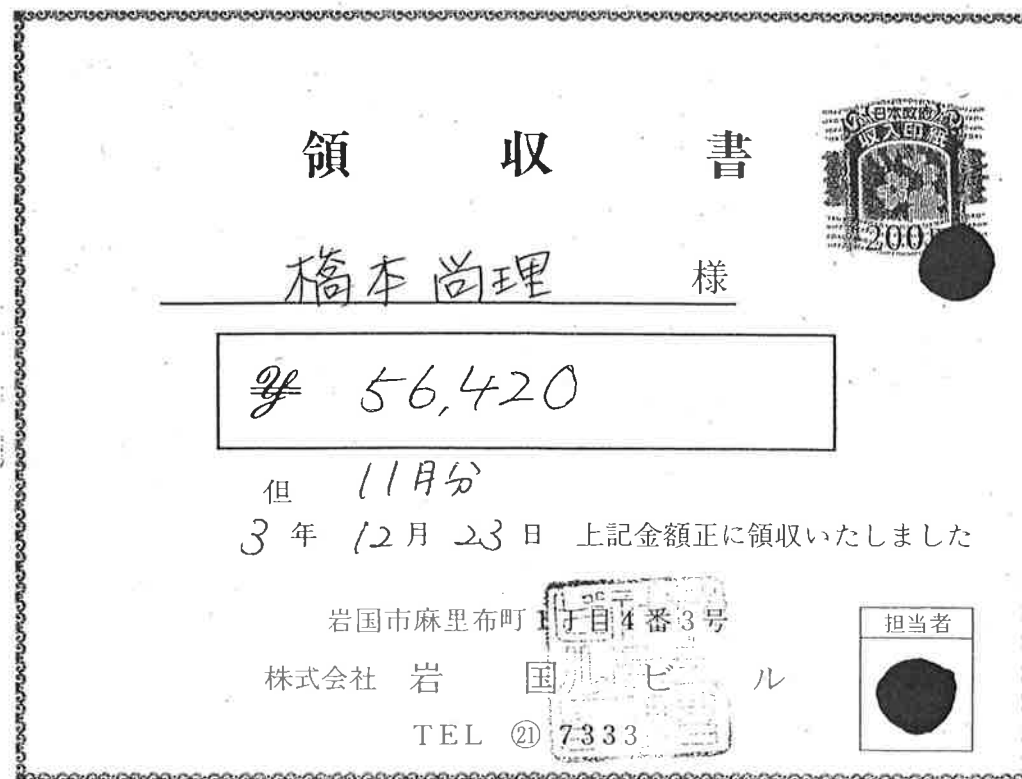 領収書
日本政府
収入印紙
200
橋本尚理 様
¥ 56,420
但 11月分
3年 12月 23日 上記金額正に領収いたしました
岩国市麻里布町1丁目4番3号
担当者
株式会社 岩国 ビル
TEL ㉑ 7333